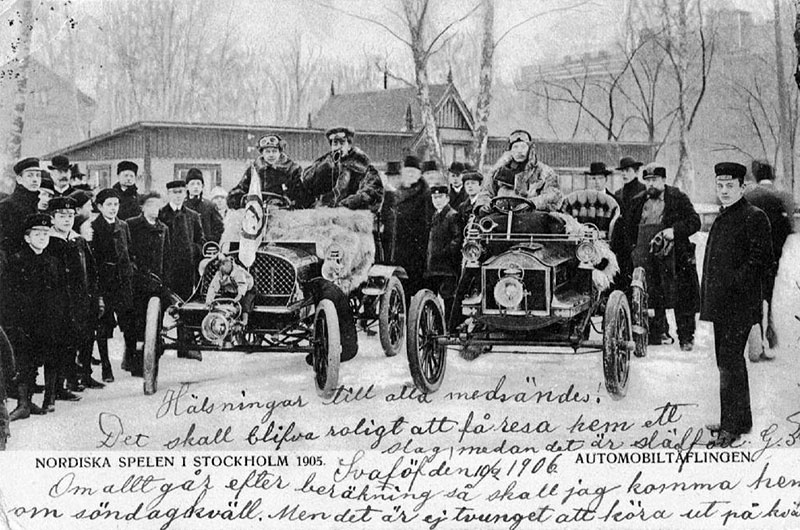 Hälsningar till alla medsändes!
Det skall blifva roligt att få resa hem ett
slag, medan det är slädföre. G.
NORDISKA SPELEN I STOCKHOLM 1905.
den 10/2 1906
AUTOMOBILTÄFLINGEN.
Om allt går efter beräkning så skall jag komma hem
om söndagkväll. Men det är ej tvunget att köra ut på